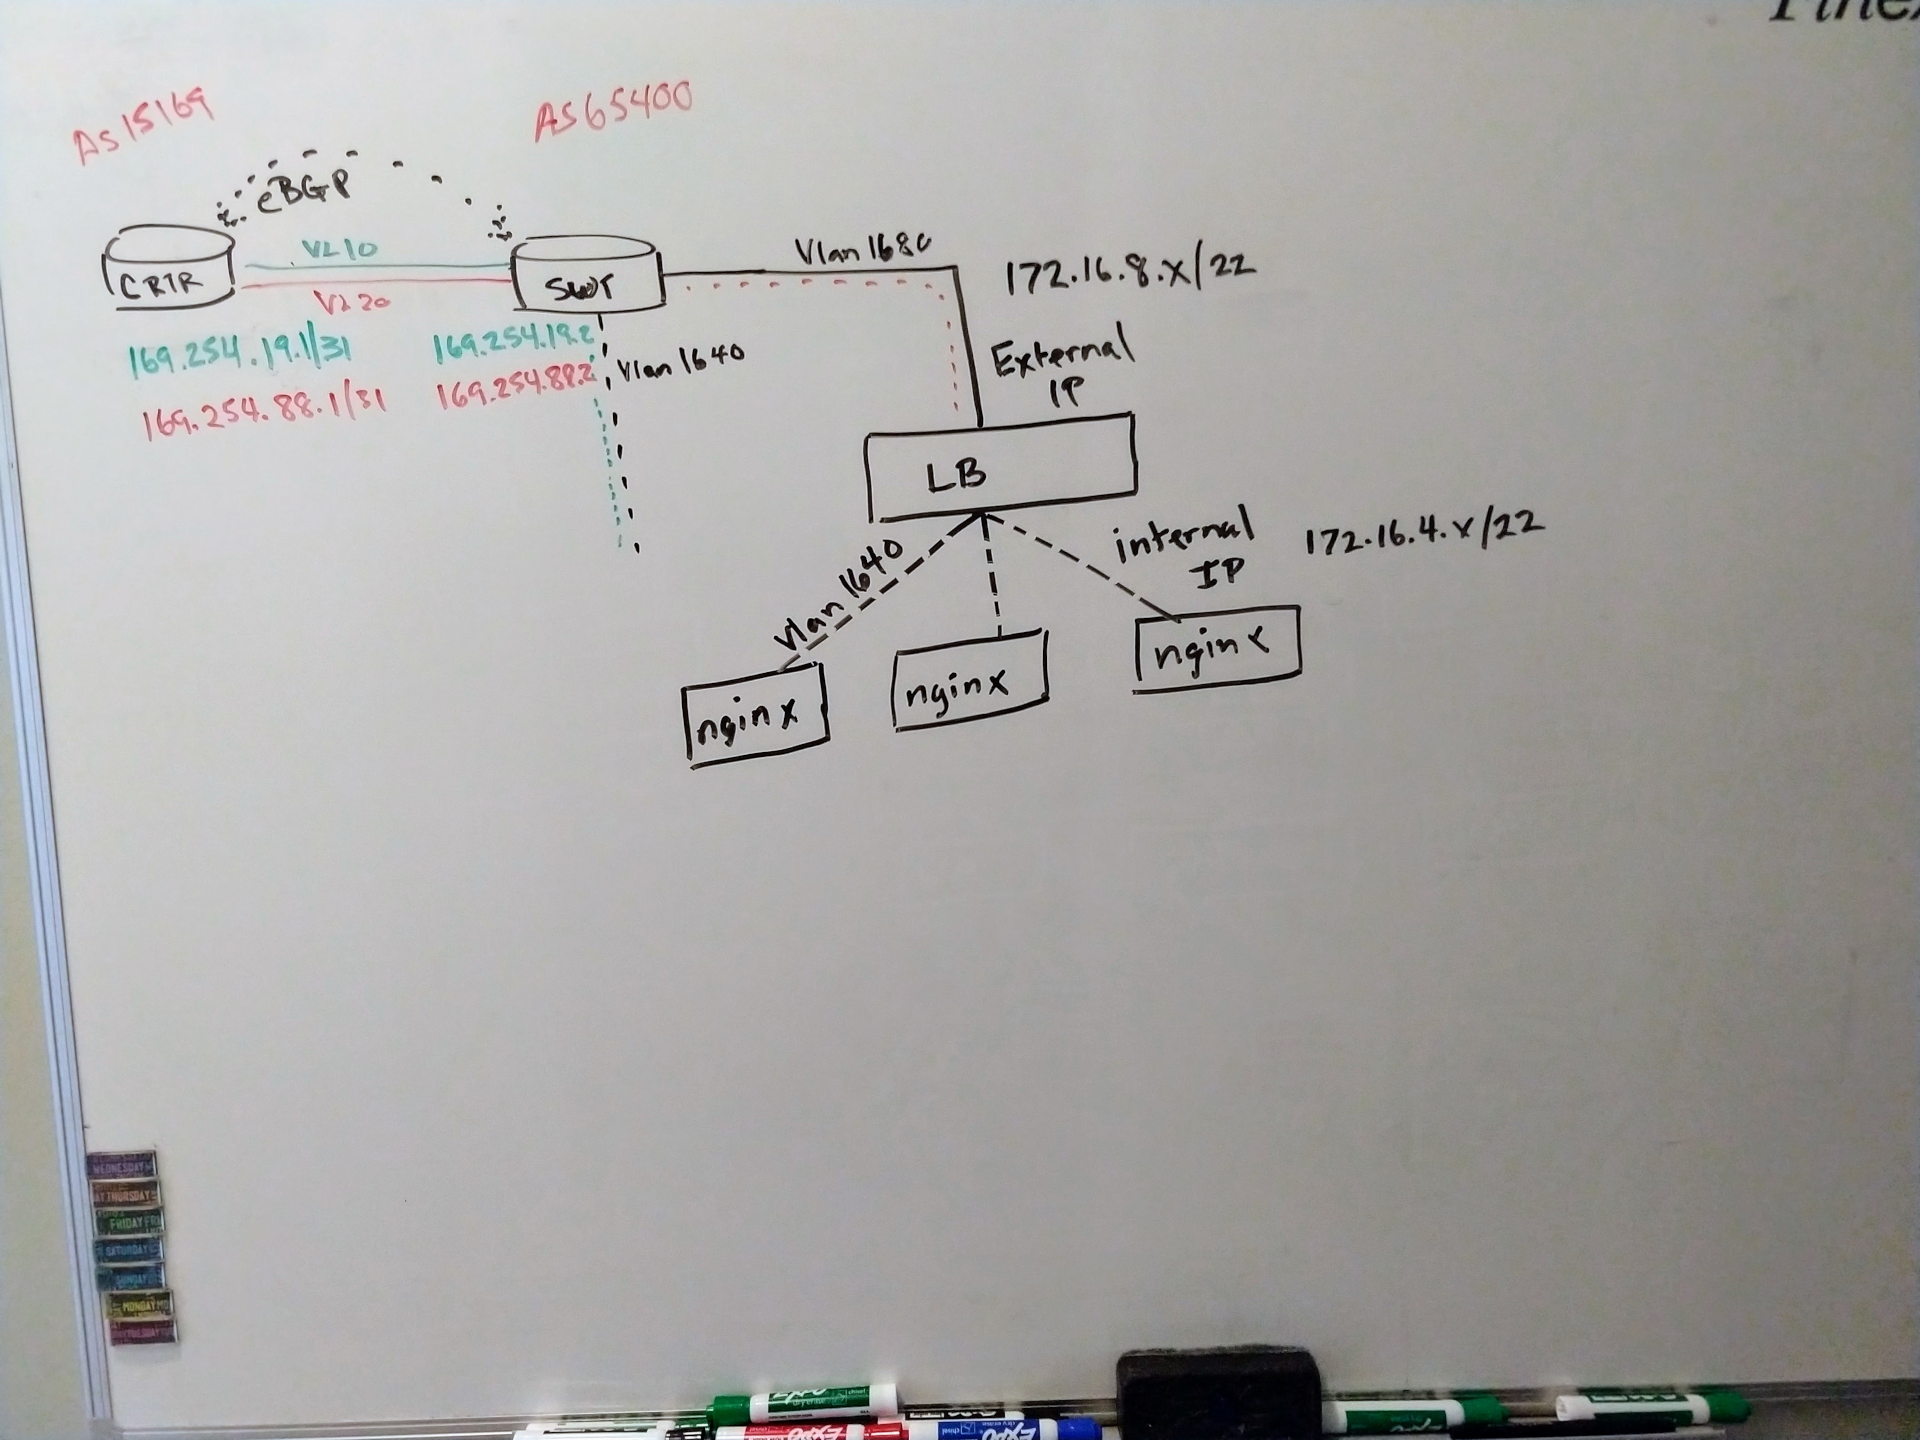 AS15169
AS65400
eBGP
CRTR
VL 10
VL 20
169.254.19.1/31
169.254.88.1/31
169.254.19.2
169.254.88.2
Vlan 1640
Vlan 1680
172.16.8.x/22
External
IP
LB
Vlan 1640
internal
IP
172.16.4.x/22
nginx
nginx
nginx
WEDNESDAY
THURSDAY
FRIDAY FRI
SATURDAY
SUNDAY
MONDAY MO
TUESDAY
EXPO
EXPO
EXPO